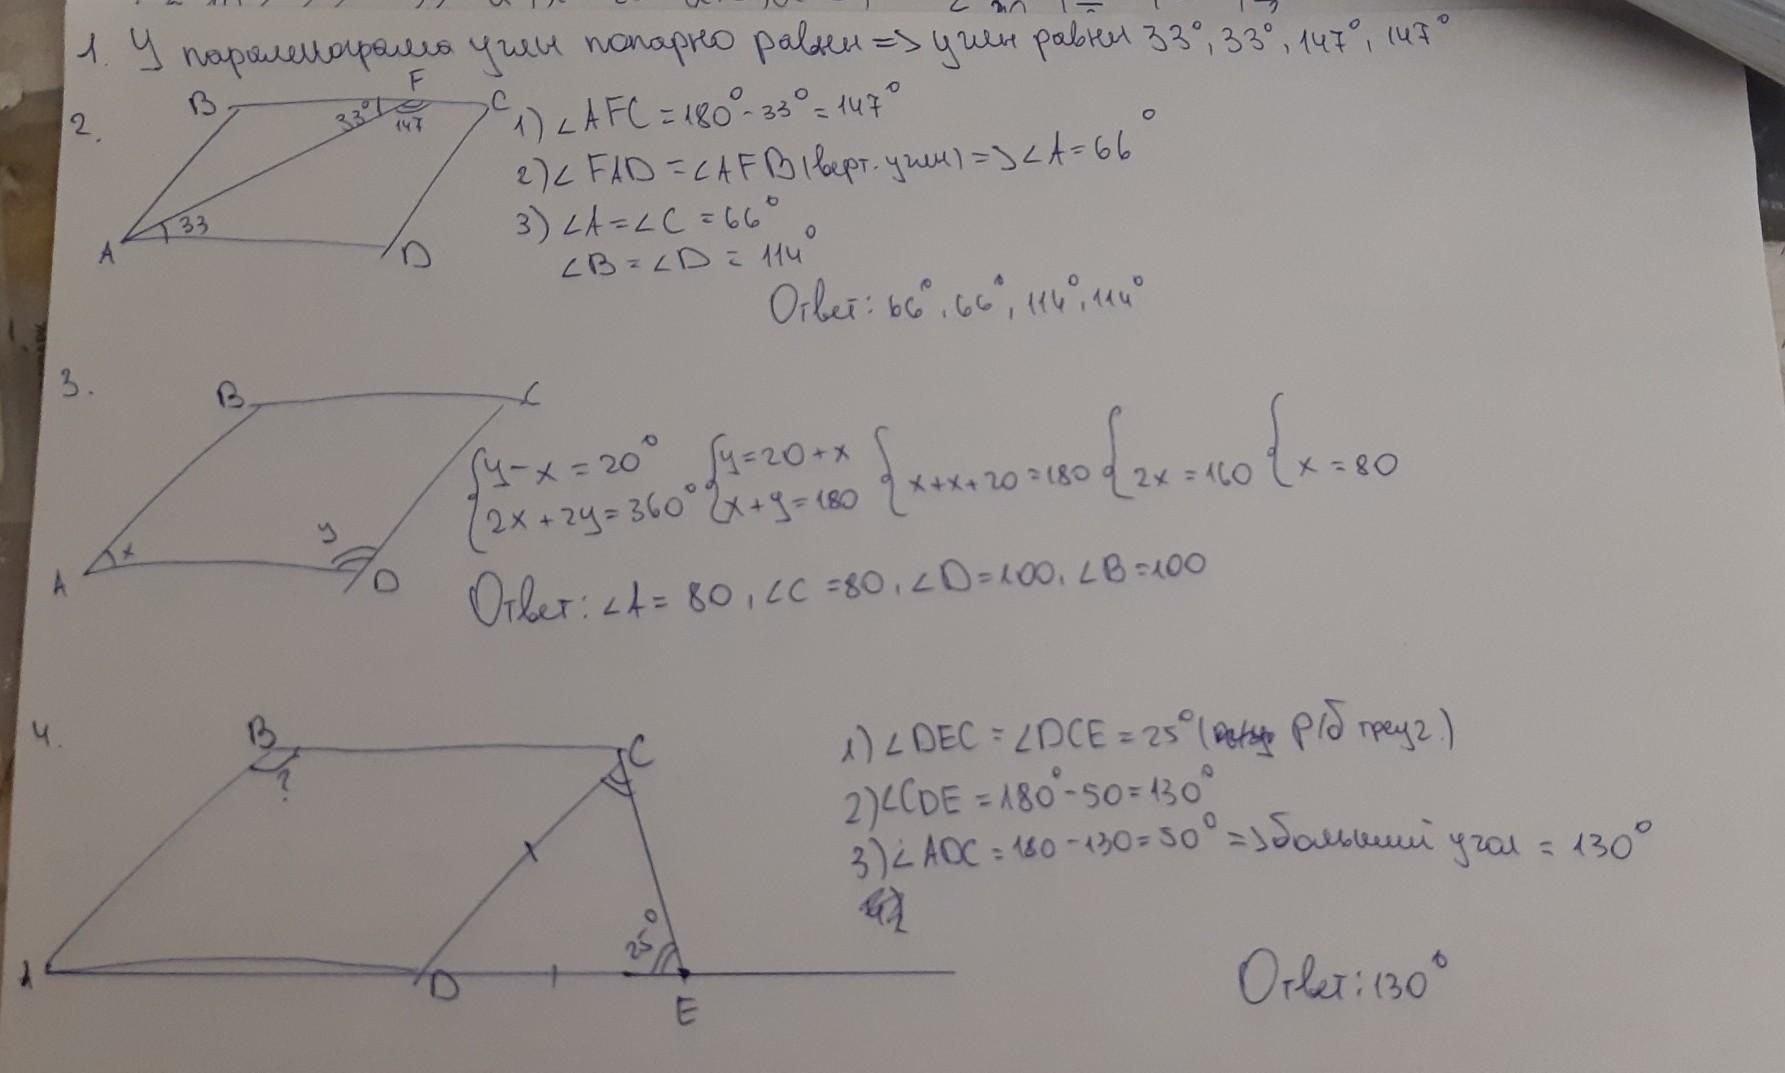 1. У паралелограма углы попарно равны => углы равны 33°, 33°, 147°, 147°
2.
B F C
33° 147
33
A D
1) ∠AFC = 180° - 33° = 147°
2) ∠FAD = ∠AFB (верт. углы) => ∠A = 66°
3) ∠A = ∠C = 66°
∠B = ∠D = 114°
Ответ: 66°, 66°, 114°, 114°
3.
B C
y
x
A D
{y - x = 20° {y = 20 + x
{2x + 2y = 360° {x + y = 180 {x + x + 20 = 180 {2x = 160 {x = 80
Ответ: ∠A = 80, ∠C = 80, ∠D = 100, ∠B = 100
4.
B C
?
25°
A D
E
1) ∠DEC = ∠DCE = 25° ( р/б треуг.)
2) ∠CDE = 180° - 50 = 130°
3) ∠ADC = 180 - 130 = 50° => больший угол = 130°
Ответ: 130°